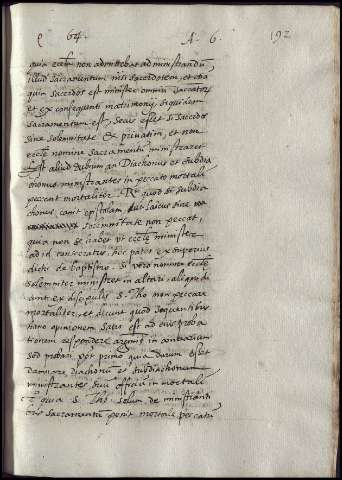 q 64. A. 6. 192
quia eccla non admittebat ad ministrandū
illud sacramentum nisi sacerdotem, et etiā
quia sacerdos est minister omniū
et ex consequenti matrimonij, siquidem
sacramentum est, secus esset si sacerdos
sine solemnitate & privatim, et non
eccle nomine sacramētū ministraret
Est aliud dubium an Diachonus et subdia
conus ministrantes in peccato mortali
peccent mortaliter. Rr quod si subdia
chonus, cant epistolam, aut laicus sine
solemnitate non peccat,
quia non se habet ut eccle minister
ad id consecratus, hec patet ex superius
dictis de baptismo. Si vero nomine eccle
solemniter ministret in altari, aliqui di
cunt ex discipulis S. Tho non peccare
mortaliter, et dicunt quod sequentibus
hanc opinionem satis est ad eius proba
tionem respondere argtis in contrarium
sed probant por primo quia durum esset
damnare diachonum et subdiachonum
ministrantes suū offitiū in mortali
2º quia S. Tho solum de ministranti
bus sacramentū ponit mortale peccatū